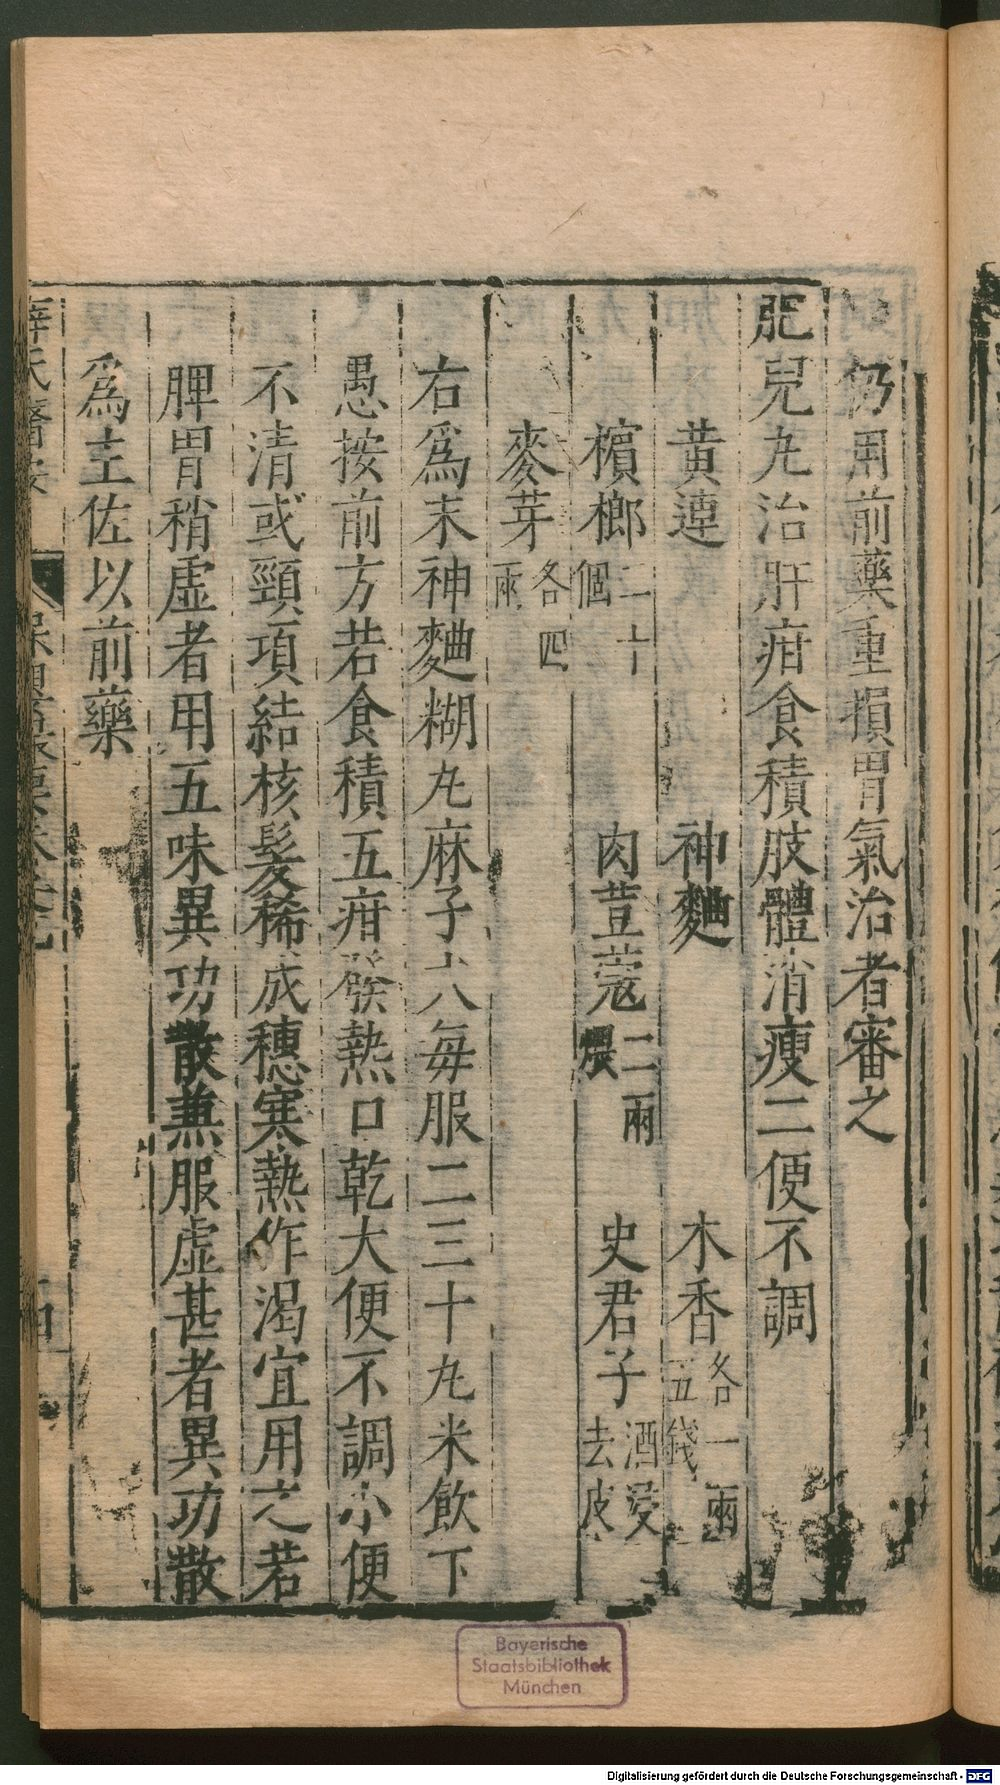 仍用前藥重損胃氣治者審之
肥兒丸治肝疳食積肢體消瘦二便不調
黄連　神麯　木香各一兩五錢
檳榔二十個　肉荳蔲二兩煨　史君子酒浸去皮
麥芽各四兩
右爲末神麯糊丸麻子大每服二三十丸米飲下
愚按前方若食積五疳發熱口乾大便不調小便
不清或頸項結核髮稀成穗寒熱作渴宜用之若
脾胃稍虛者用五味異功散兼服虛甚者異功散
爲主佐以前藥
薛氏醫按
Bayerische
Staatsbibliothek
München
Digitalisierung gefördert durch die Deutsche Forschungsgemeinschaft - DFG